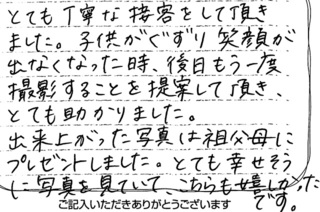 とても丁寧な接客をして頂き
ました。子供がぐずり笑顔が
出なくなった時、後日もう一度
撮影することを提案して頂き、
とても助かりました。
出来上がった写真は祖父母に
プレゼントしました。とても幸せそう
に写真を見ていて、こちらも嬉しかった
です。
ご記入いただきありがとうございます